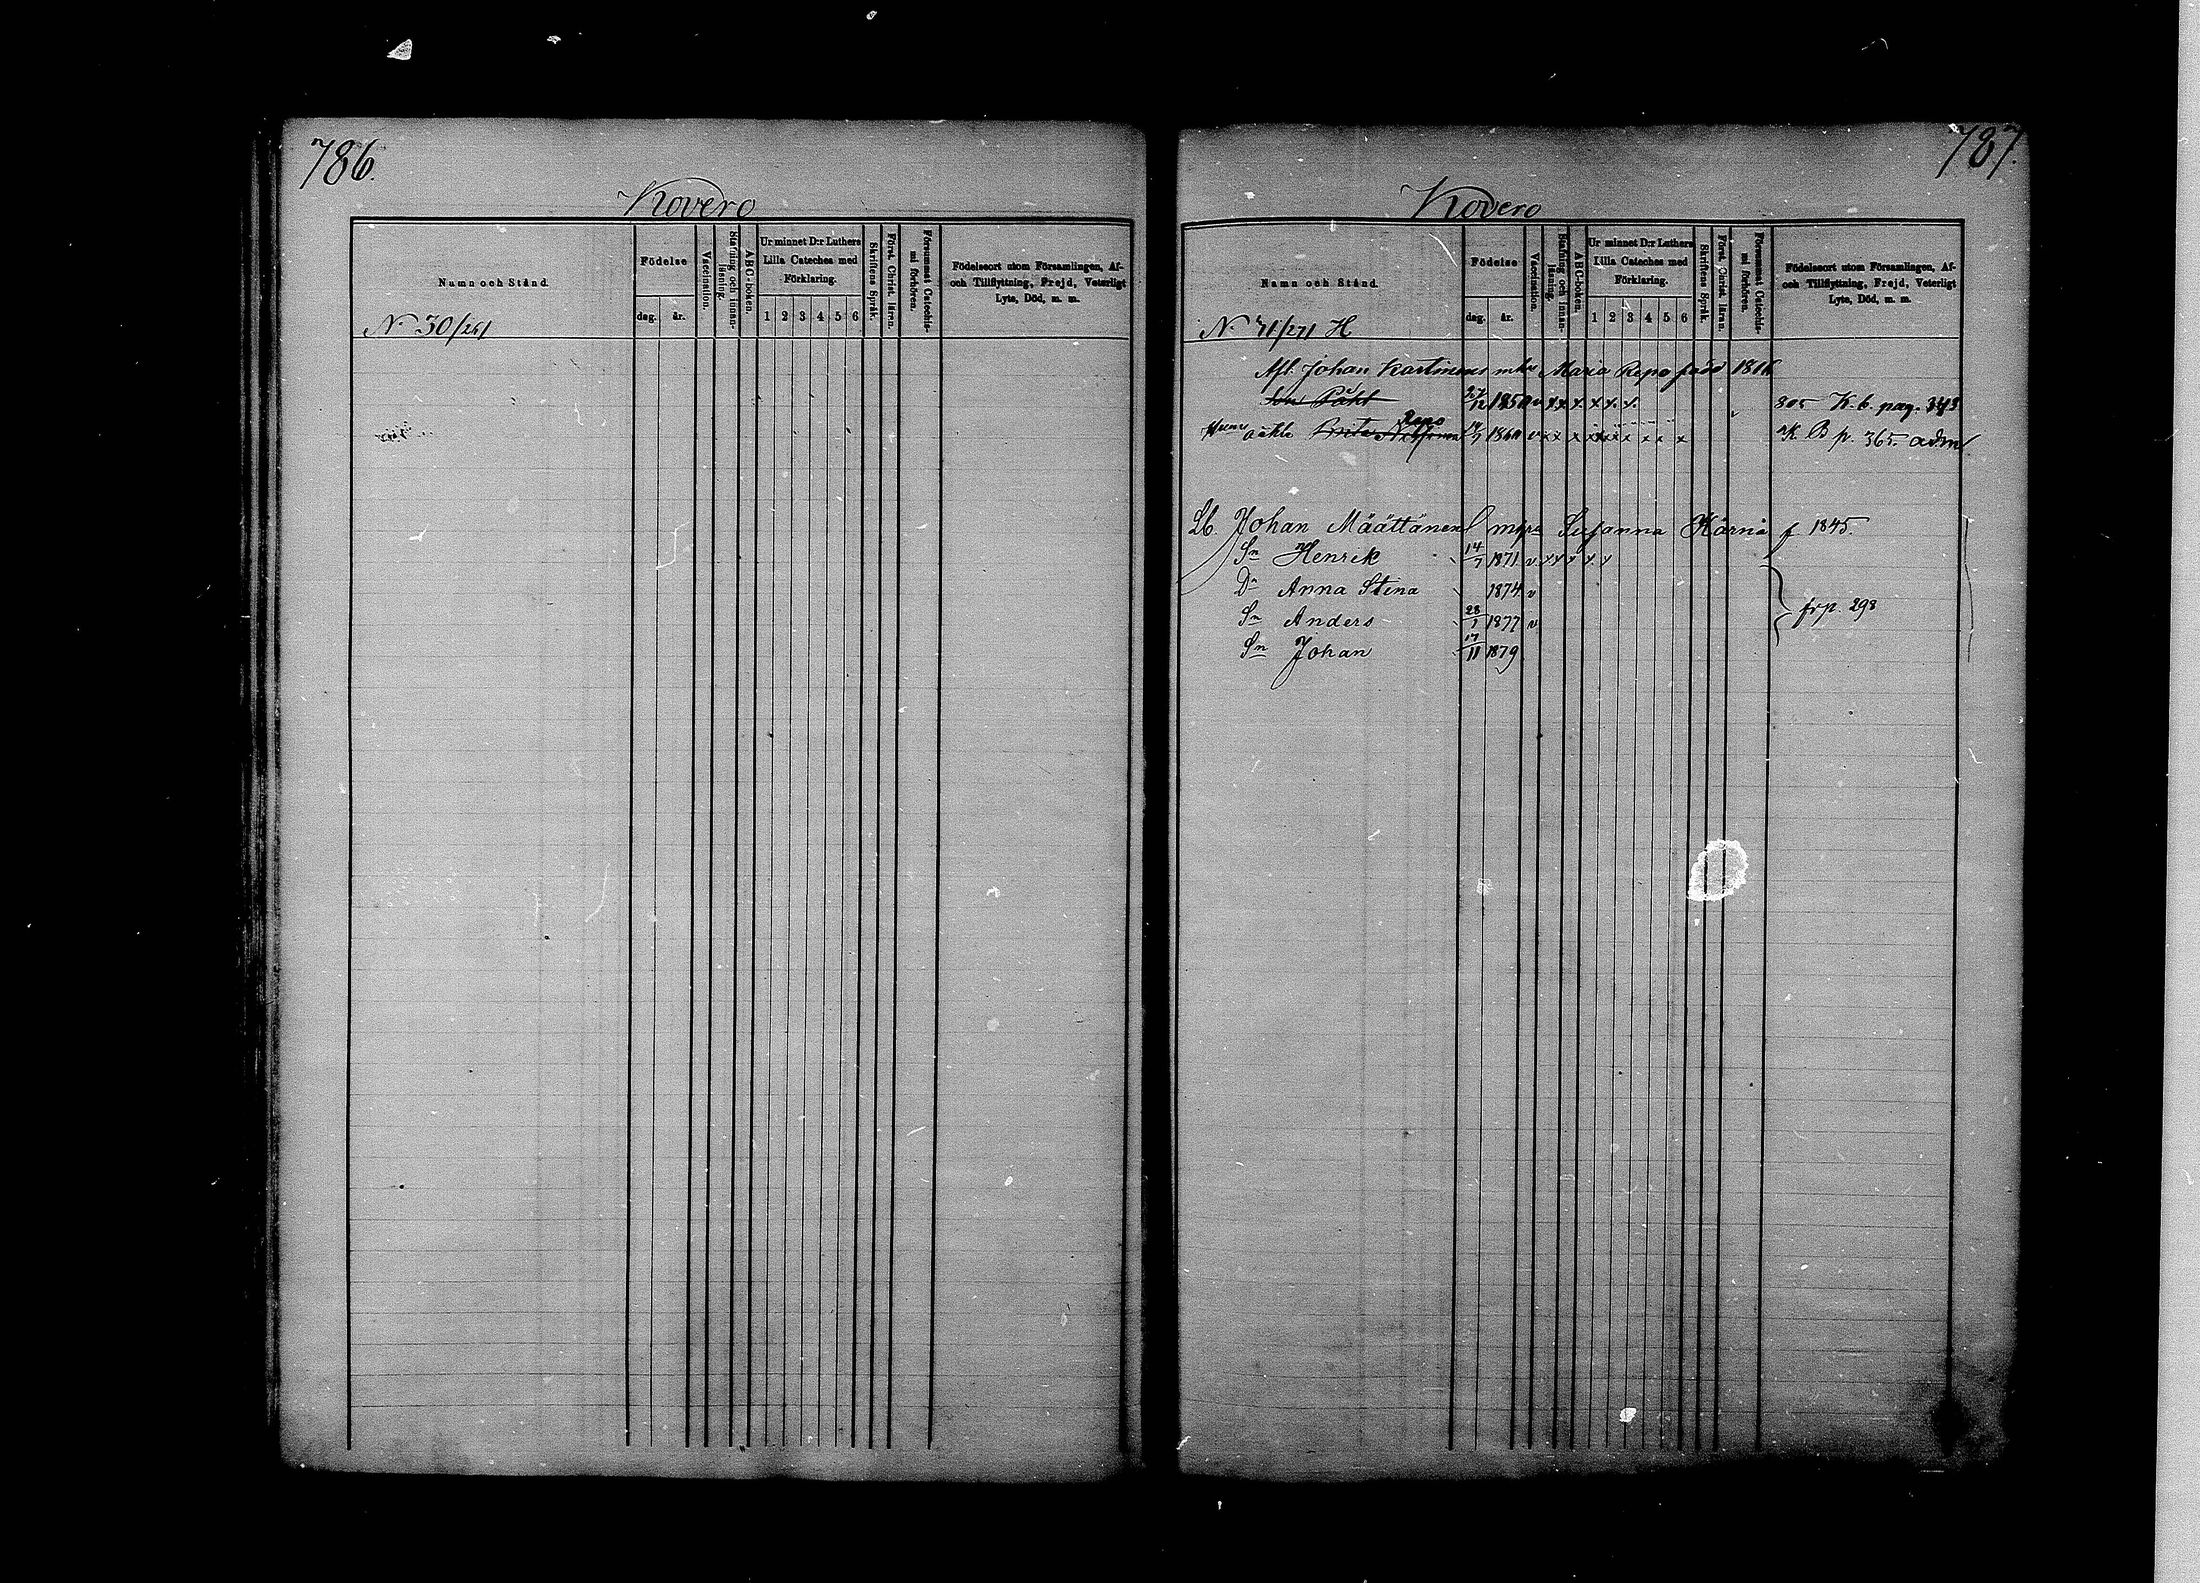 786.
Kovero
Namn och Stånd.
Födelse
dag. år.
Vaccination.
Stafning och innanläsning.
ABC-boken.
Ur minnet D:r Luthers Lilla Cateches med Förklaring.
1 2 3 4 5 6
Skriftens Språk.
Först. Christ. läran.
Försummat Catechismi förhören.
Födelseort utom Församlingen, Af- och Tillflyttning, Frejd, Veterligt Lyte, Död, m. m.
N. 30/261
787.
Kovero
Namn och Stånd.
Födelse
dag. år.
Vaccination.
Stafning och innanläsning.
ABC-boken.
Ur minnet D:r Luthers Lilla Cateches med Förklaring.
1 2 3 4 5 6
Skriftens Språk.
Först. Christ. läran.
Försummat Catechismi förhören.
Födelseort utom Församlingen, Af- och Tillflyttning, Frejd, Veterligt Lyte, Död, m. m.
N. 71/271 H
Afl. Johan Karttunen Maria Repo född
27/12 v x x x x x x 805 K. b. pag. 343
Repo
Brita v x x x x x x x x x K. B p. 365. adm
Lb. Johan Määttänen Susanna Kärnä f 1845.
Sn Henrik 14/7 1871 v x x x x x
Dr Anna Stina 1874 v
frp. 298
Sn Anders 28/1 1877 v
Sn Johan 17/11 1879